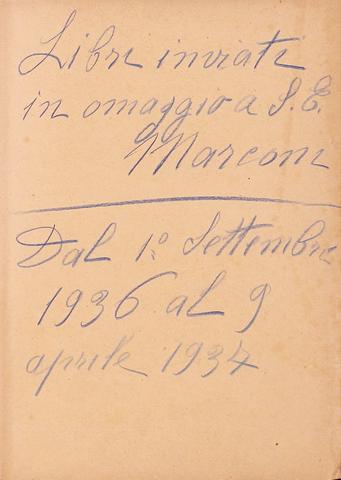 Libri inviati
in omaggio a S. E.
Marconi
Dal 1º Settembre
1936 al 9
aprile 1937